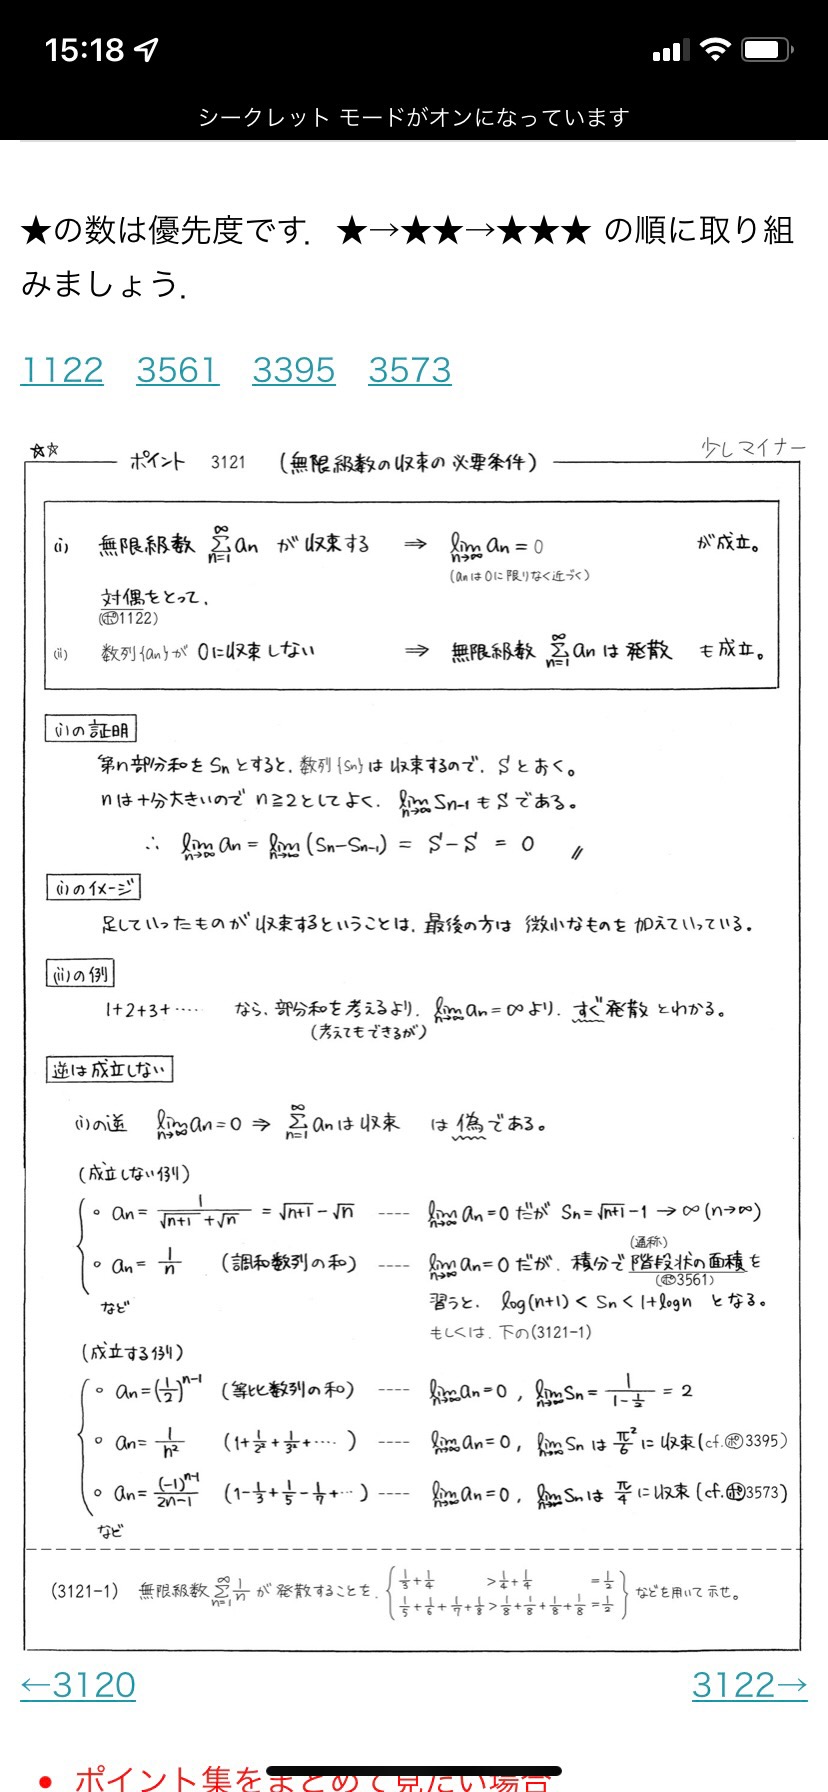 15:18
シークレット モードがオンになっています
★の数は優先度です．★→★★→★★★ の順に取り組
みましょう．
1122 3561 3395 3573
☆☆ ポイント 3121 (無限級数の収束の必要条件) 少しマイナー
(i) 無限級数 ∑_{n=1}^{∞} an が収束する ⇒ lim_{n→∞} an = 0 が成立。
(anは0に限りなく近づく)
対偶をとって，
(ポ1122)
(ii) 数列{an}が 0に収束しない ⇒ 無限級数 ∑_{n=1}^{∞} an は発散 も成立。
(i)の証明
第n部分和をSnとすると，数列{Sn}は収束するので，Sとおく。
nは十分大きいので n≧2としてよく，lim_{n→∞} Sn-1 もSである。
∴ lim_{n→∞} an = lim_{n→∞} (Sn−Sn-1) = S−S = 0 //
(i)のイメージ
足していったものが収束するということは，最後の方は微小なものを加えていっている。
(ii)の例
1+2+3+‥‥ なら，部分和を考えるより，lim_{n→∞} an = ∞より，すぐ発散とわかる。
(考えてもできるが)
逆は成立しない
(i)の逆 lim_{n→∞} an=0 ⇒ ∑_{n=1}^{∞} anは収束 は偽である。
(成立しない例)
∘ an= 1/(√(n+1)+√n) = √(n+1)−√n ---- lim_{n→∞} an=0 だが Sn=√(n+1)−1 → ∞ (n→∞)
(通称)
∘ an= 1/n (調和数列の和) ---- lim_{n→∞} an=0 だが，積分で階段状の面積を
(ポ3561)
など 習うと，log(n+1) < Sn < 1+logn となる。
もしくは，下の(3121-1)
(成立する例)
∘ an=(1/2)^{n-1} (等比数列の和) ---- lim_{n→∞} an=0，lim_{n→∞} Sn= 1/(1−1/2) = 2
∘ an= 1/n² (1+1/2²+1/3²+‥‥) ---- lim_{n→∞} an=0，lim_{n→∞} Sn は π²/6 に収束(cf.ポ3395)
∘ an= (-1)^{n-1}/(2n−1) (1−1/3+1/5−1/7+‥) ---- lim_{n→∞} an=0，lim_{n→∞} Snは π/4 に収束(cf.ポ3573)
など
(3121-1) 無限級数 ∑_{n=1}^{∞} 1/n が発散することを，{ 1/3+1/4 > 1/4+1/4 = 1/2
1/5+1/6+1/7+1/8 > 1/8+1/8+1/8+1/8 = 1/2 } などを用いて示せ。
←3120 3122→
• ポイント集をまとめて見たい場合